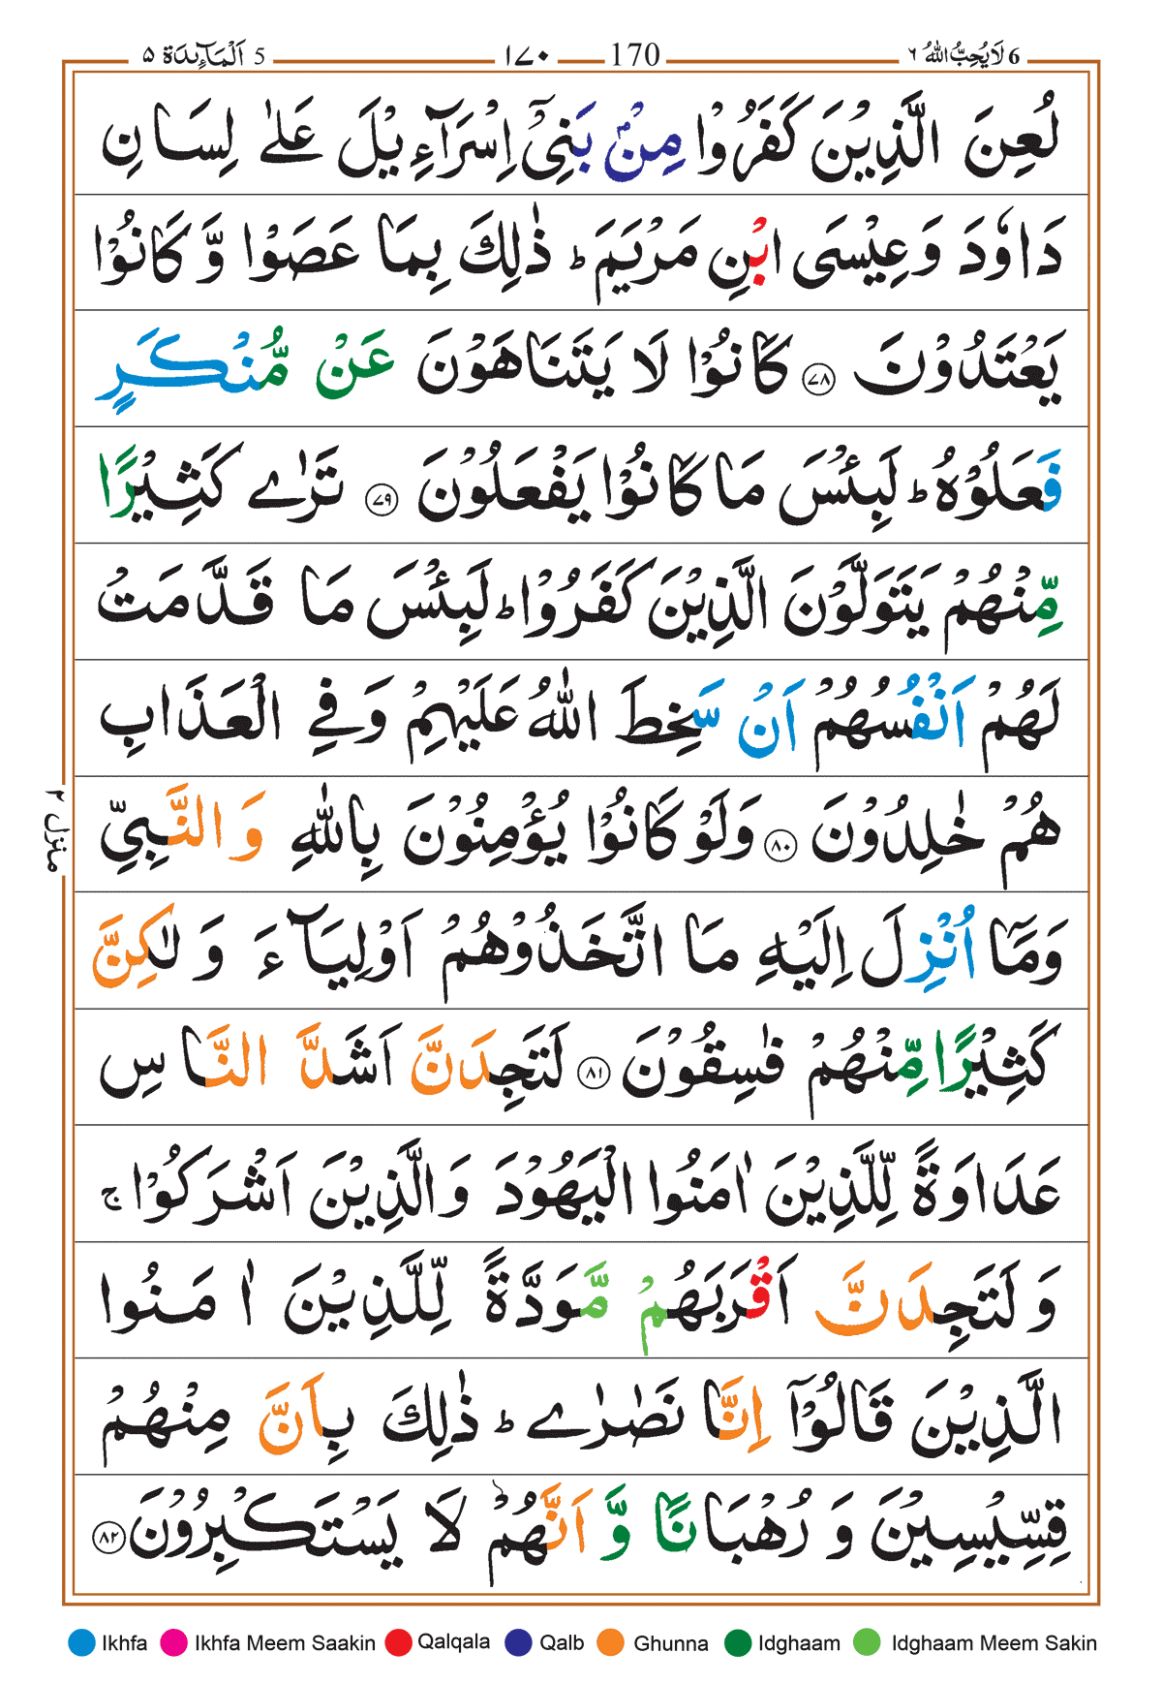 6 لَا يُحِبُّ اللهُ ٦ 170 ١٧٠ 5 اَلْمَآئِدَة ٥
لُعِنَ الَّذِيْنَ كَفَرُوْا مِنْۢ بَنِيْۤ اِسْرَآءِيْلَ عَلٰى لِسَانِ
دَاوٗدَ وَعِيْسَى ابْنِ مَرْيَمَ ؕ ذٰلِكَ بِمَا عَصَوْا وَّ كَانُوْا
يَعْتَدُوْنَ ﴿٧٨﴾ كَانُوْا لَا يَتَنَاهَوْنَ عَنْ مُّنْكَرٍ
فَعَلُوْهُ ؕ لَبِئْسَ مَا كَانُوْا يَفْعَلُوْنَ ﴿٧٩﴾ تَرٰى كَثِيْرًا
مِّنْهُمْ يَتَوَلَّوْنَ الَّذِيْنَ كَفَرُوْا ؕ لَبِئْسَ مَا قَدَّمَتْ
لَهُمْ اَنْفُسُهُمْ اَنْ سَخِطَ اللهُ عَلَيْهِمْ وَفِي الْعَذَابِ
هُمْ خٰلِدُوْنَ ﴿٨٠﴾ وَلَوْ كَانُوْا يُؤْمِنُوْنَ بِاللهِ وَالنَّبِيِّ
وَمَاۤ اُنْزِلَ اِلَيْهِ مَا اتَّخَذُوْهُمْ اَوْلِيَآءَ وَلٰكِنَّ
كَثِيْرًا مِّنْهُمْ فٰسِقُوْنَ ﴿٨١﴾ لَتَجِدَنَّ اَشَدَّ النَّاسِ
عَدَاوَةً لِّلَّذِيْنَ اٰمَنُوا الْيَهُوْدَ وَالَّذِيْنَ اَشْرَكُوْا ۚ
وَلَتَجِدَنَّ اَقْرَبَهُمْ مَّوَدَّةً لِّلَّذِيْنَ اٰمَنُوا
الَّذِيْنَ قَالُوْۤا اِنَّا نَصٰرٰى ؕ ذٰلِكَ بِاَنَّ مِنْهُمْ
قِسِّيْسِيْنَ وَرُهْبَانًا وَّاَنَّهُمْ لَا يَسْتَكْبِرُوْنَ ﴿٨٢﴾
منزل ٢
Ikhfa Ikhfa Meem Saakin Qalqala Qalb Ghunna Idghaam Idghaam Meem Sakin